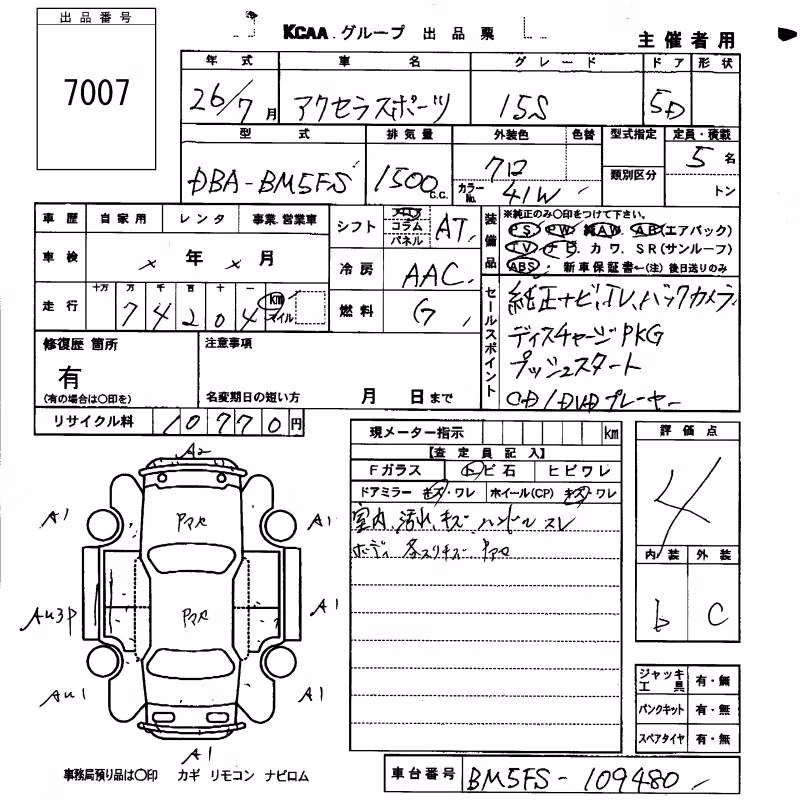 出品番号
7007
KCAA グループ 出品票
主催者用
年式 車名 グレード ドア 形状
26/7月 アクセラスポーツ 15S 5D
型式 排気量 外装色 色替 型式指定 定員・積載
DBA-BM5FS 1500c.c. クロ カラーNo. 41W 類別区分 5名 トン
車歴 自家用 レンタ 事業・営業車
シフト コラム パネル AT
装備品 ※純正のみ○印をつけて下さい。
PS PW 純AW AB(エアバック)
TV ナビ カワ. SR(サンルーフ)
ABS 新車保証書←(注) 後日送りのみ
車検 × 年 × 月
冷房 AAC
走行 十万 万 千 百 十 一
74204 km マイル
燃料 G
セールスポイント
純正ナビ、TV、バックカメラ
ディスチャージPKG
プッシュスタート
CD/DVDプレーヤー
修復歴 箇所 注意事項
有
(有の場合は○印を) 名変期日の短い方 月 日まで
リサイクル料 10770円
現メーター指示 km
評価点
4
【査定員記入】
Fガラス トビ石 ヒビワレ
ドアミラー キズ・ワレ ホイール(CP) キズ・ワレ
室内 汚れ キズ ハンドル スレ
ボディ 各スリキズ アマセ
内装 外装
b C
A2
A1 アマセ A1
AU3P アマセ A1
AU1 A1
A1
ジャッキ工具 有・無
パンクキット 有・無
スペアタイヤ 有・無
事務局預り品は○印 カギ リモコン ナビロム
車台番号 BM5FS-109480